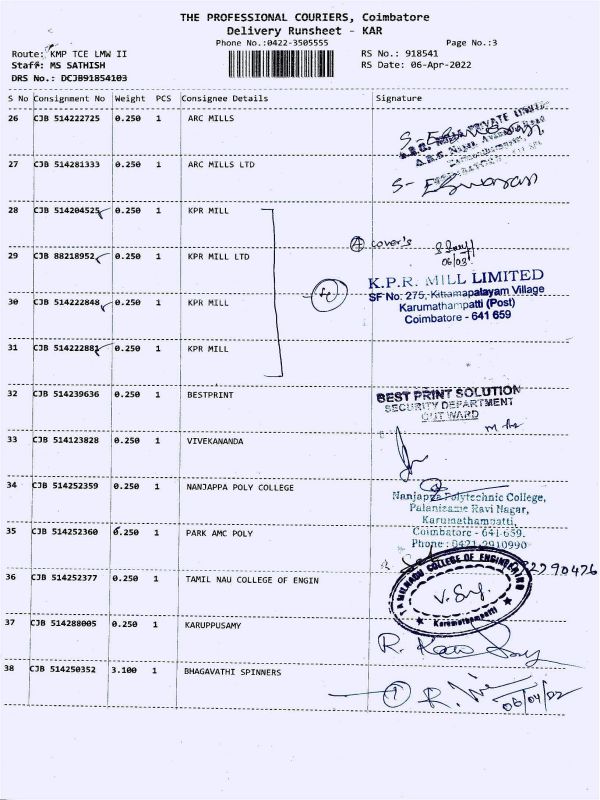 THE PROFESSIONAL COURIERS, Coimbatore
Delivery Runsheet - KAR
Phone No.:0422-3505555 Page No.:3
Route: KMP TCE LMW II RS No.: 918541
Staff: MS SATHISH RS Date: 06-Apr-2022
DRS No.: DCJB91854103
S No Consignment No Weight PCS Consignee Details Signature
26 CJB 514222725 0.250 1 ARC MILLS
27 CJB 514281333 0.250 1 ARC MILLS LTD
S- Eswaran
28 CJB 514204525 0.250 1 KPR MILL
④ cover's
29 CJB 88218952 0.250 1 KPR MILL LTD
K.P.R. MILL LIMITED
SF No: 275, Kittamapalayam Village
30 CJB 514222848 0.250 1 KPR MILL
Karumathampatti (Post)
Coimbatore - 641 659
31 CJB 514222881 0.250 1 KPR MILL
32 CJB 514239636 0.250 1 BESTPRINT
BEST PRINT SOLUTION
SECURITY DEPARTMENT
OUT WARD
33 CJB 514123828 0.250 1 VIVEKANANDA
34 CJB 514252359 0.250 1 NANJAPPA POLY COLLEGE
Nanjappa Polytechnic College,
Palanisame Ravi Nagar,
Karumathampatti,
35 CJB 514252360 0.250 1 PARK AMC POLY
Coimbatore - 641-659.
Phone : 0421-2910990
36 CJB 514252377 0.250 1 TAMIL NAU COLLEGE OF ENGIN
TAMILNADU COLLEGE OF ENGINEERING
Karumathampatti
37 CJB 514288005 0.250 1 KARUPPUSAMY
38 CJB 514250352 3.100 1 BHAGAVATHI SPINNERS
① 06/04/22